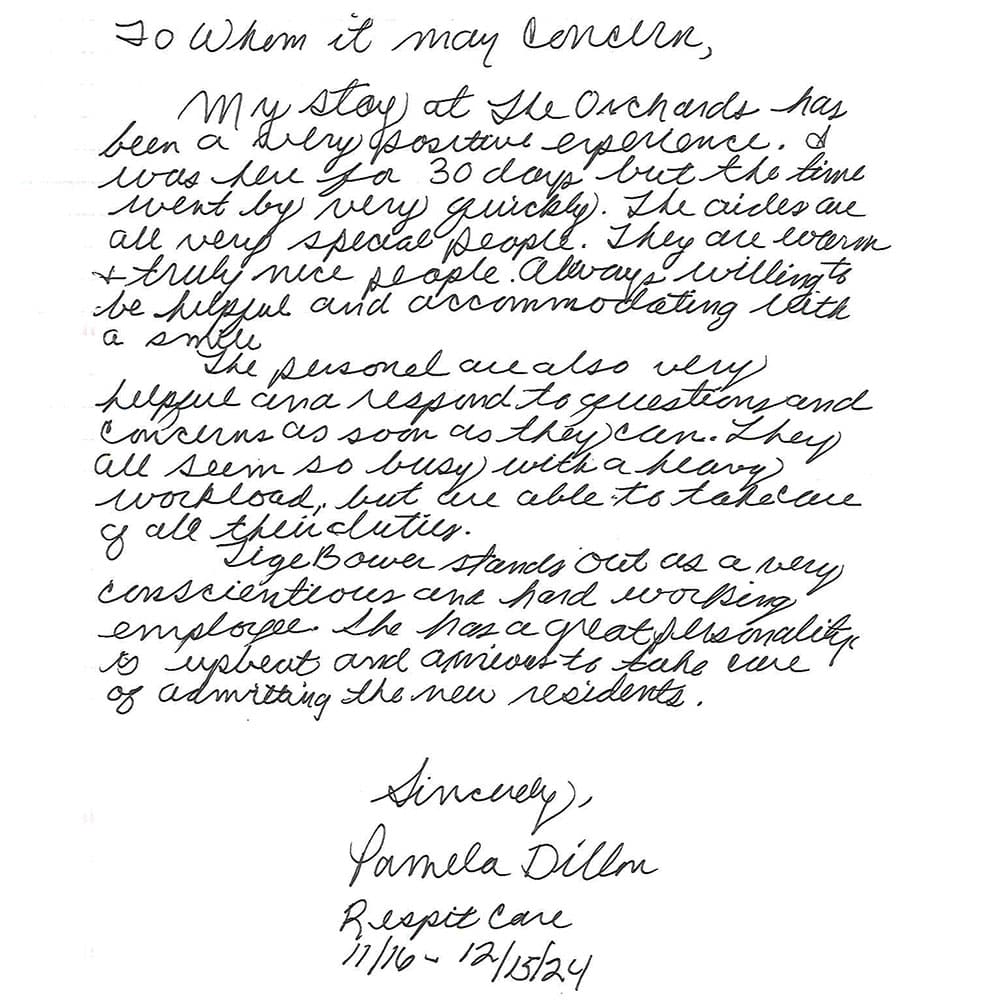 To Whom it may Concern,
My stay at The Orchards has
been a very positive experience. I
was here for 30 days but the time
went by very quickly. The aides are
all very special people. They are warm
& truly nice people. Always willing to
be helpful and accommodating with
a smile
The personel are also very
helpful and respond to questions and
concerns as soon as they can. They
all seem so busy with a heavy
workload, but are able to take care
of all their duties.
Tige Bower stands out as a very
conscientious and hard working
employee. She has a great personality,
is upbeat and anxious to take care
of admitting the new residents.
Sincerely,
Pamela Dillon
Respit Care
11/16 - 12/15/24